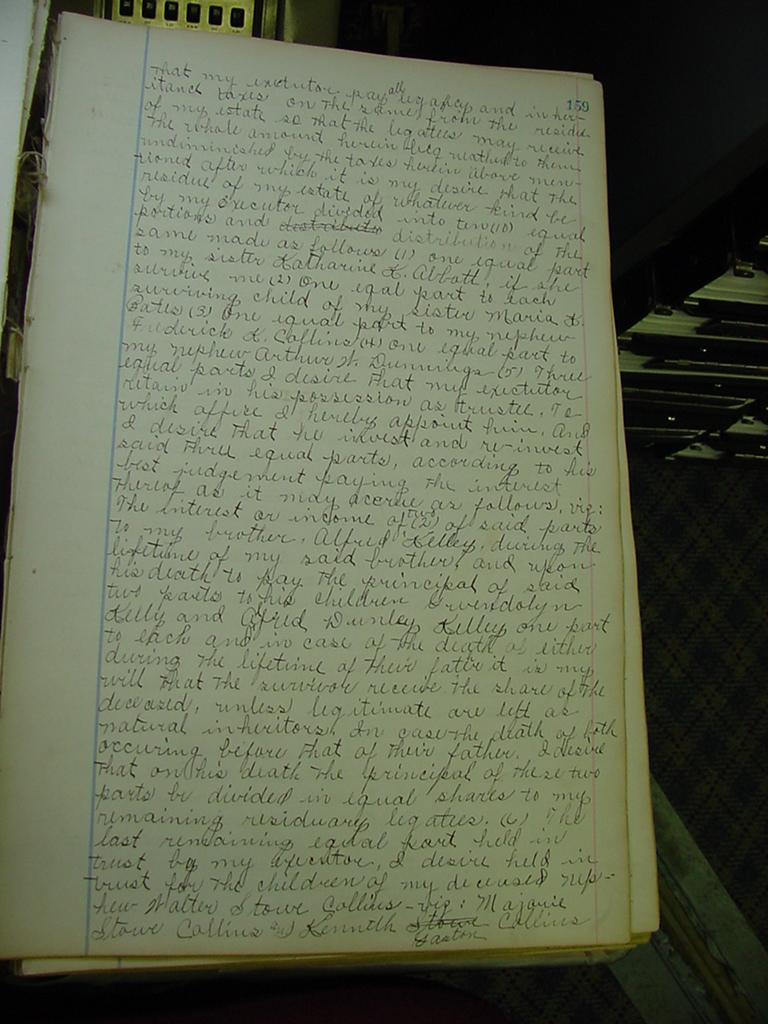 159
that my executor pay all legacy and inher-
itance taxes on the same from the residue
of my estate so that the legatees may receive
the whole amount herein beq neathed to them
undiminished by the taxes herein above men-
tioned after which it is my desire that the
residue of my estate of whatever kind be
by my executor divided into ten (10) equal
portions and distribution of the
same made as follows (1) one equal part
to my sister Katharine K. Abbott, if she
survive me (2) One eqal part to each
surviving child of my sister Maria K.
Bates (3) One equal part to my nephew
Frederick K. Collins (4) one equal part to
my nephew Arthur W. Dunnings (5) Three
equal parts I desire that my exectutor
retain in his possession as trustee, To
which office I hereby appoint him. And
I desire that he invest and re-invest
said three equal parts, according to his
best judgement paying the interest
thereof as it may accrue as follows, viz:
The interest or income of two (2) of said parts
to my brother, Alfred Kelley, during the
lifetime of my said brother, and upon
his death to pay the principal of said
two parts to his children Gwendolyn
Kelly and Alfred Dunley Kelley one part
to each and in case of the death of either
during the lifetime of their fater it is my
will that the survivor receive the share of the
deceased, unless legitimate are left as
natural inheritors. In case the death of both
occuring before that of their father, I desire
that on his death the principal of these two
parts be divided in equal shares to my
remaining residuary legatees. (6) The
last remaining equal part held in
trust by my executor, I desire held in
trust for the children of my deceased nep-
hew Walter Stowe Collins - viz: Majorie
Stowe Collins and Kenneth Stowe Collins
Gaston